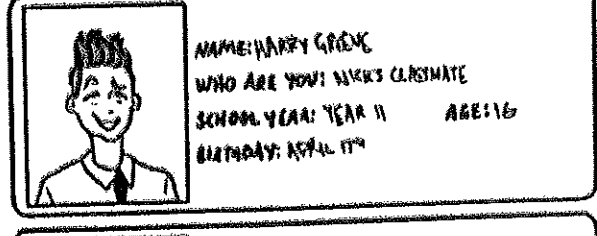 NAME: HARRY GREENE
WHO ARE YOU: NICK'S CLASSMATE
SCHOOL YEAR: YEAR 11 AGE: 16
BIRTHDAY: APRIL 17TH